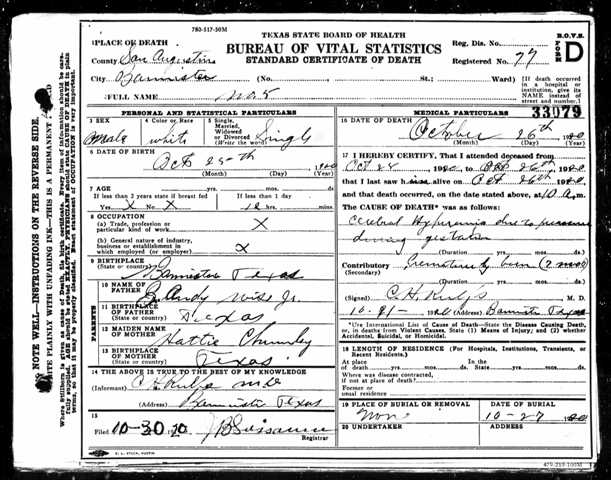 780-517-50M
TEXAS STATE BOARD OF HEALTH
BUREAU OF VITAL STATISTICS
STANDARD CERTIFICATE OF DEATH
B.O.V.S.
FORM D
Reg. Dis. No.
Registered No. 77
1 PLACE OF DEATH
County San Augustine
City Bannister (No. St.; Ward)
[If death occurred in a hospital or institution, give its NAME instead of street and number.]
FULL NAME
33079
PERSONAL AND STATISTICAL PARTICULARS
3 SEX
Male
4 Color or Race
white
5 Single, Married, Widowed or Divorced (Write the word)
Single
6 DATE OF BIRTH
Oct 25th
(Month) (Day) (Year)
7 AGE yrs. mos. ds.
If less than 2 years state if breast fed
Yes X No X
If less than 1 day
12 hrs. min.
8 OCCUPATION
(a) Trade, profession or particular kind of work X
(b) General nature of industry, business or establishment in which employed (or employer) X
9 BIRTHPLACE
(State or country) Bannister Texas
PARENTS
10 NAME OF FATHER
Andy Wise Jr.
11 BIRTHPLACE OF FATHER
(State or country) Texas
12 MAIDEN NAME OF MOTHER
Hattie Chumley
13 BIRTHPLACE OF MOTHER
(State or country) Texas
14 THE ABOVE IS TRUE TO THE BEST OF MY KNOWLEDGE
(Informant)
(Address) Bannister Texas
15
Filed 10-30 20
Registrar
MEDICAL PARTICULARS
16 DATE OF DEATH
October 26th
(Month) (Day) (Year)
17 I HEREBY CERTIFY, That I attended deceased from
Oct 25 1920 to Oct 26th, 1920
that I last saw h alive on Oct 26th 1920,
and that death occurred, on the date stated above, at 10 a.m.
The CAUSE OF DEATH* was as follows:
Cerebral Hyperemia due to pressure
during gestation
(Duration) yrs. mos. ds.
Contributory Prematurely born (2 mos)
(Secondary)
(Duration) yrs. mos. ds.
(Signed) M. D.
(Address) Bannister Texas
*Use International List of Cause of Death—State the Disease Causing Death, or, in deaths from Violent Causes, State (1) Means of Injury; and (2) whether Accidental, Suicidal, or Homicidal.
18 LENGTH OF RESIDENCE (For Hospitals, Institutions, Transients, or Recent Residents.)
At place of death yrs. mos. ds. In the State yrs. mos. ds.
Where was disease contracted, if not at place of death?
Former or usual residence
19 PLACE OF BURIAL OR REMOVAL
DATE OF BURIAL
10-27 1920
20 UNDERTAKER
ADDRESS
479-219-100M
NOTE WELL—INSTRUCTIONS ON THE REVERSE SIDE.
WRITE PLAINLY WITH UNFADING INK—THIS IS A PERMANENT